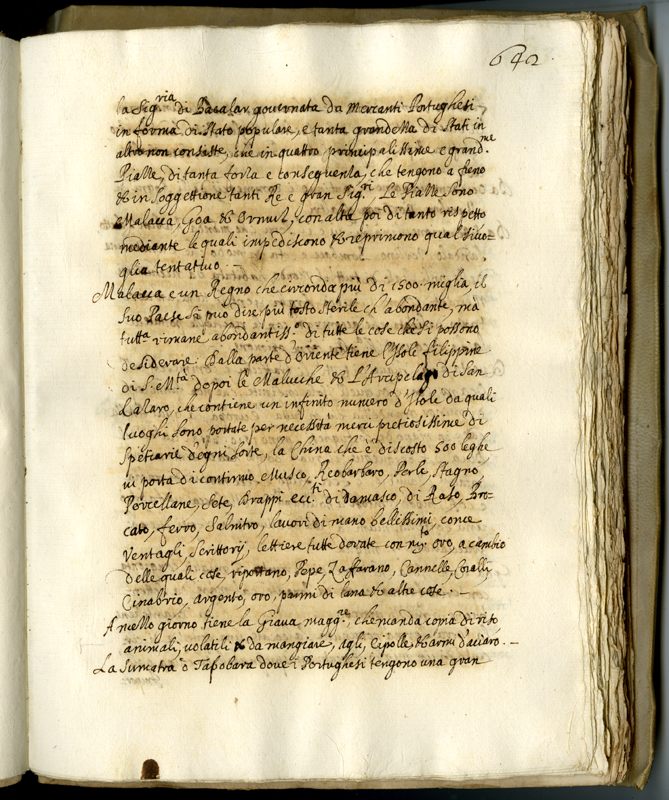 642
la Sig.ria di Bacalar governata da Mercanti Portughesi
in forma di Stato populare, e tanta grandezza di Stati in
altro non consiste, che in quattro principalissime e grand.me
Piazze, di tanta forza e consequenza, che tengono a freno
et in soggettione tanti Re e gran Sig.ri, Le Piazze sono
Malacca, Goa et Ormuz, con altre poi di tanto rispetto
mediante le quali impediscono et reprimono qual sivo=
glia tentativo. –
Malacca è un Regno che circonda più di 1500 miglia, il
suo Paese si può dire più tosto sterile ch'abondante, mà
tutta rimane abondantiss.o di tutte le cose che si possono
desiderare. Dalla parte d'oriente tiene l'Isole filippine
di S. M.tà dopoi le Malucche et L'Arcipelago di San
Lazaro, che contiene un infinito numero d'Isole da quali
luoghi sono portate per necessità merci pretiosissime di
Spetiarie d'ogni sorte, la China che è discosto 500 leghe
vi porta di continuo Musco, Reobarbaro, Perle, Stagno
Porcellane, Sete, Drappi ecc.ti di damasco, di Raso, Bro=
cato, ferro, Salnitro, lavori di mano bellissimi, come
Ventagli, Scrittorij, lettiere tutte dorate con oro, a cambio
delle quali cose riportano, Pepe, Zaffarano, Cannelle, Coralli
Cinabrio, argento, oro, panni di lana et altre cose. –
A mezzo giorno tiene la Giava magg.re, che manda copia di riso
animali, volatili da mangiare, agli, Cipolle, et armi d'acciaro. –
La Sumatra ò Tapobara dove i Portughesi tengono una gran